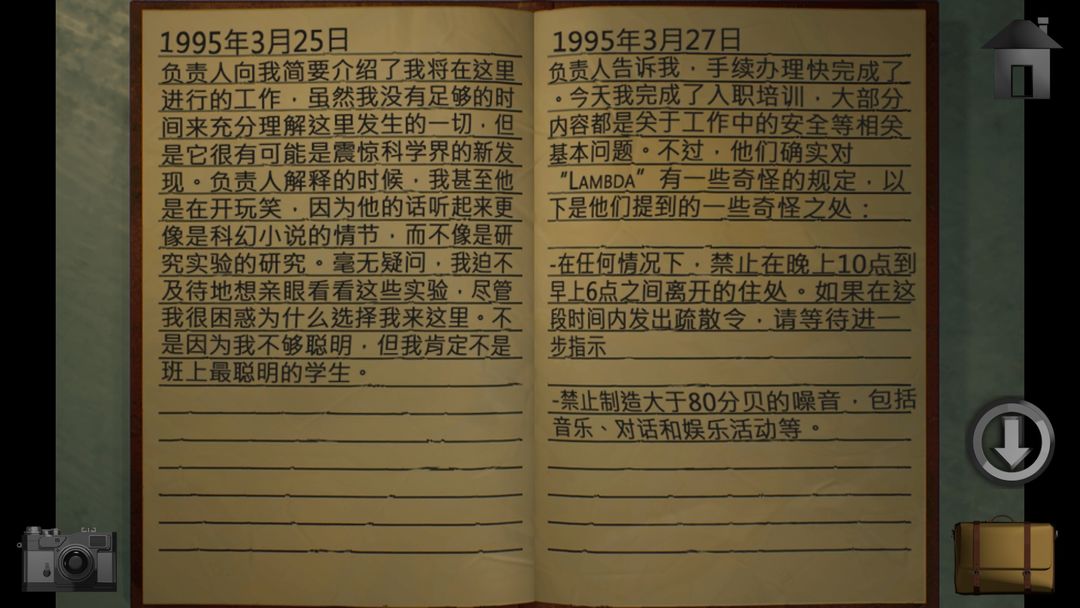 1995年3月25日
负责人向我简要介绍了我将在这里
进行的工作，虽然我没有足够的时
间来充分理解这里发生的一切，但
是它很有可能是震惊科学界的新发
现。负责人解释的时候，我甚至他
是在开玩笑，因为他的话听起来更
像是科幻小说的情节，而不像是研
究实验的研究。毫无疑问，我迫不
及待地想亲眼看看这些实验，尽管
我很困惑为什么选择我来这里。不
是因为我不够聪明，但我肯定不是
班上最聪明的学生。
1995年3月27日
负责人告诉我，手续办理快完成了
。今天我完成了入职培训，大部分
内容都是关于工作中的安全等相关
基本问题。不过，他们确实对
“LAMBDA”有一些奇怪的规定，以
下是他们提到的一些奇怪之处：
-在任何情况下，禁止在晚上10点到
早上6点之间离开的住处。如果在这
段时间内发出疏散令，请等待进一
步指示
-禁止制造大于80分贝的噪音，包括
音乐、对话和娱乐活动等。